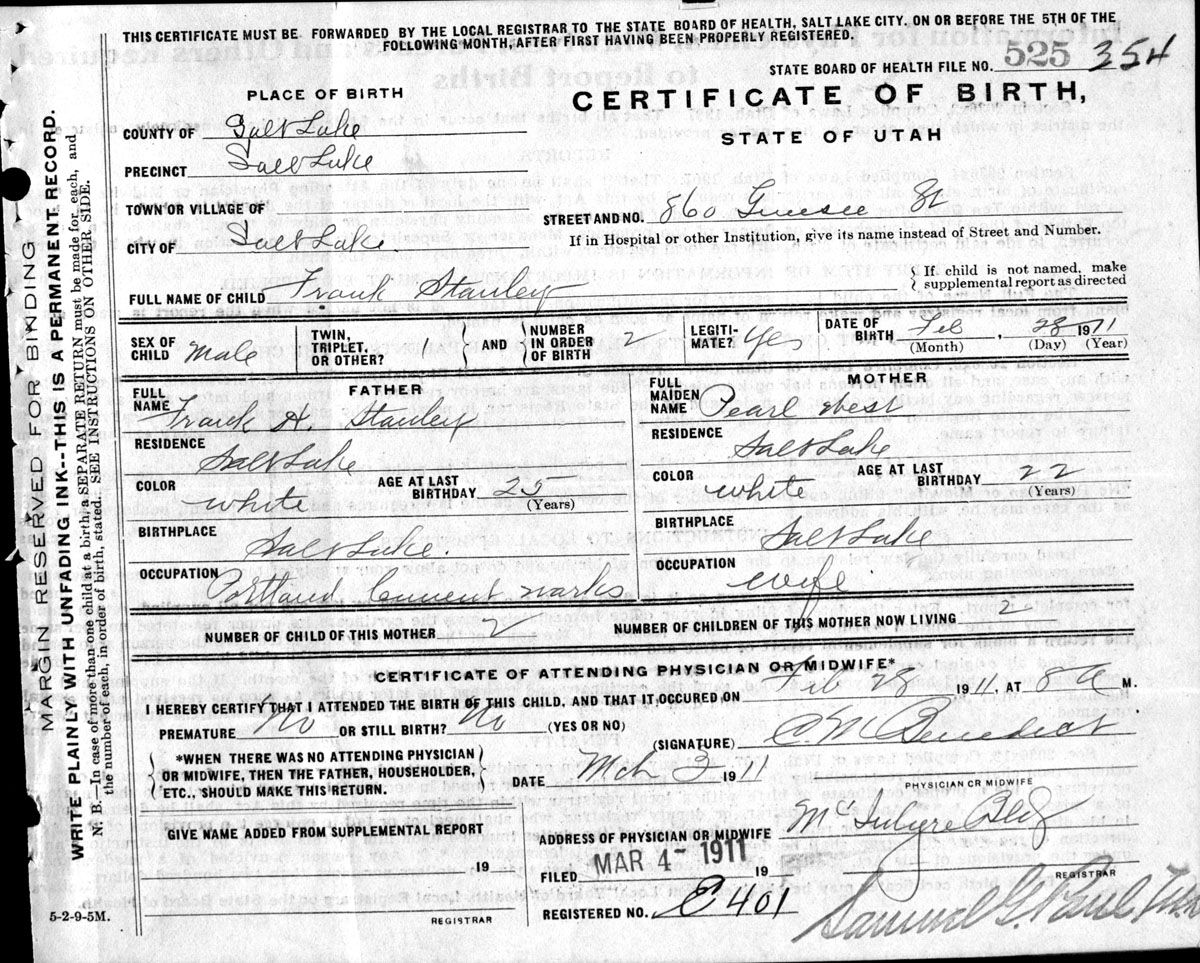 THIS CERTIFICATE MUST BE FORWARDED BY THE LOCAL REGISTRAR TO THE STATE BOARD OF HEALTH, SALT LAKE CITY. ON OR BEFORE THE 5TH OF THE
FOLLOWING MONTH, AFTER FIRST HAVING BEEN PROPERLY REGISTERED.
STATE BOARD OF HEALTH FILE NO. 525 354
PLACE OF BIRTH
CERTIFICATE OF BIRTH,
STATE OF UTAH
COUNTY OF Salt Lake
PRECINCT Salt Lake
TOWN OR VILLAGE OF
STREET AND NO. 860 St
CITY OF Salt Lake
If in Hospital or other Institution, give its name instead of Street and Number.
FULL NAME OF CHILD Frank Stanley
{ If child is not named, make
supplemental report as directed
SEX OF CHILD Male
TWIN, TRIPLET, OR OTHER? 1 } AND { NUMBER IN ORDER OF BIRTH 2
LEGITI-MATE? Yes
DATE OF BIRTH Feb, 28 1911
(Month) (Day) (Year)
FATHER
FULL NAME Frank H. Stanley
RESIDENCE Salt Lake
COLOR white AGE AT LAST BIRTHDAY 25 (Years)
BIRTHPLACE Salt Lake.
OCCUPATION Portland Cement works
MOTHER
FULL MAIDEN NAME Pearl West
RESIDENCE Salt Lake
COLOR white AGE AT LAST BIRTHDAY 22 (Years)
BIRTHPLACE Salt Lake
OCCUPATION wife
NUMBER OF CHILD OF THIS MOTHER 2 NUMBER OF CHILDREN OF THIS MOTHER NOW LIVING 2
CERTIFICATE OF ATTENDING PHYSICIAN OR MIDWIFE*
I HEREBY CERTIFY THAT I ATTENDED THE BIRTH OF THIS CHILD, AND THAT IT OCCURED ON Feb 28 1911 AT 8 a M.
PREMATURE No OR STILL BIRTH? No (YES OR NO)
(SIGNATURE) C. M. Benedict
{ *WHEN THERE WAS NO ATTENDING PHYSICIAN
OR MIDWIFE, THEN THE FATHER, HOUSEHOLDER,
ETC., SHOULD MAKE THIS RETURN. }
DATE Mch 3 1911
PHYSICIAN OR MIDWIFE
GIVE NAME ADDED FROM SUPPLEMENTAL REPORT
19
ADDRESS OF PHYSICIAN OR MIDWIFE McIntyre Bldg
FILED MAR 4- 1911 19
REGISTRAR
REGISTERED NO. E 401
Samuel G. Paul
REGISTRAR
5-2-9-5M.
MARGIN RESERVED FOR BINDING
WRITE PLAINLY WITH UNFADING INK--THIS IS A PERMANENT RECORD.
N. B.—In case of more than one child at a birth, a SEPARATE RETURN must be made for each, and
the number of each, in order of birth, stated. SEE INSTRUCTIONS ON OTHER SIDE.